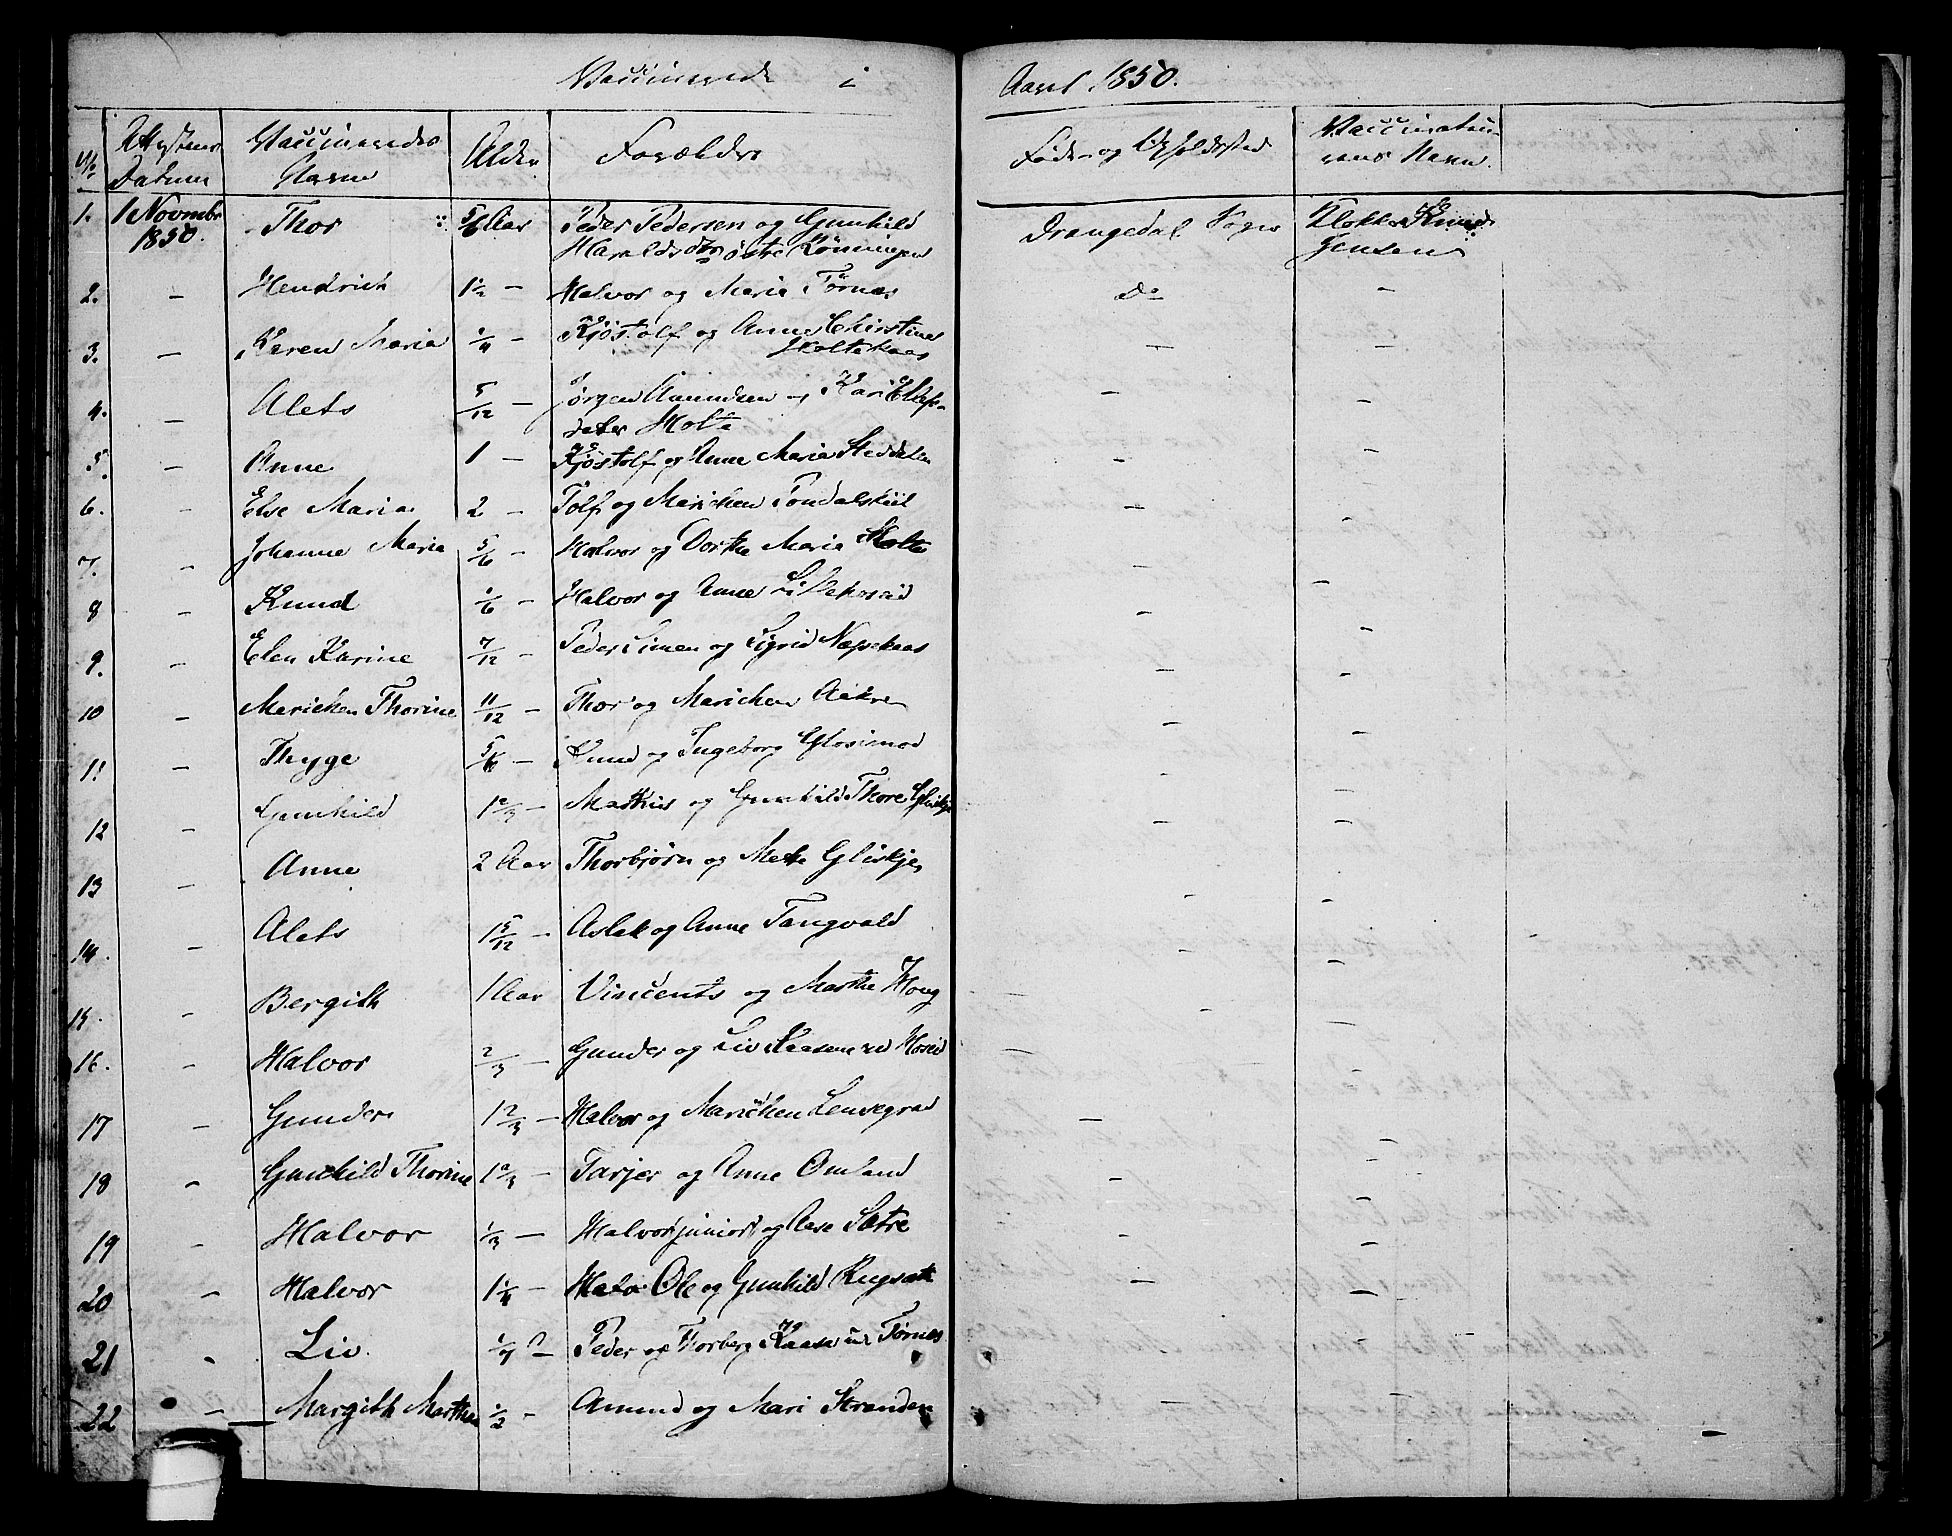 Vaccinerede i Aaret 1850.
No Attestens Datum Vaccineredes Navne Alder Forældre Føde- og Opholdssted Vaccinateurens Navn.
1. 1 Novmbr 1850. Thor 5/6 Aar Peder Pedersen og Gunhild Drangedal Sogn Klokker Knud
Haraldsdtr østre Rønningen Jensen
2. - Hendrich 1 1/2 - Halvor og Maria Tørnæs do -
3. - Karen Maria 1/4 - Kjøstolf og Anne Chirstine - -
Holtekaas
4. - Alets 5/12 - Jørgen Aanundsen og Kari - -
Holte
5. - Anne 1 - Kjøstolf og Anne Maria - -
6. - Else Maria 2 - Tolf og Marichen - -
7. - Johanne Maria 5/6 - Halvor og Dorthe Maria Holte - -
8 - Knud 1/6 - Halvor og Anne - -
9. - Elen Karine 7/12 - Peder Simen og Sigrid Næpekaas - -
10 - Marichen Thorine 11/12 - Thor og Marichen Aakre - -
11 - Thyge - Knud og Ingeborg Glosimod - -
12 - Gunhild 1 2/3 - Mathis og Gunhild Thore - -
13 - Anne 2 Aar Thorbjørn og Mette - -
14. - Alets 1 5/12 - Aslak og Anne Tangvald - -
15. - Bergith 1 Aar Vincents og Marthe Houg - -
16. - Halvor 2/3 - Gunder og Liv Kaasene Hoseid - -
17 - Gunder 1 2/3 - Halvor og Marichen Lensegrad - -
18 - Gunhild Thorine 1 2/3 - Tarjer og Anne Omland - -
19 - Halvor 1/3 - Halvor junior og Aase Sætre - -
20 - Halvor 1 1/4 - Ole og Gunhild - -
21 - Liv. Peder og Thorberg Kaasa Tørnæs
22 - Margith Marthea 1/2 - Amund og Mari Stranden -